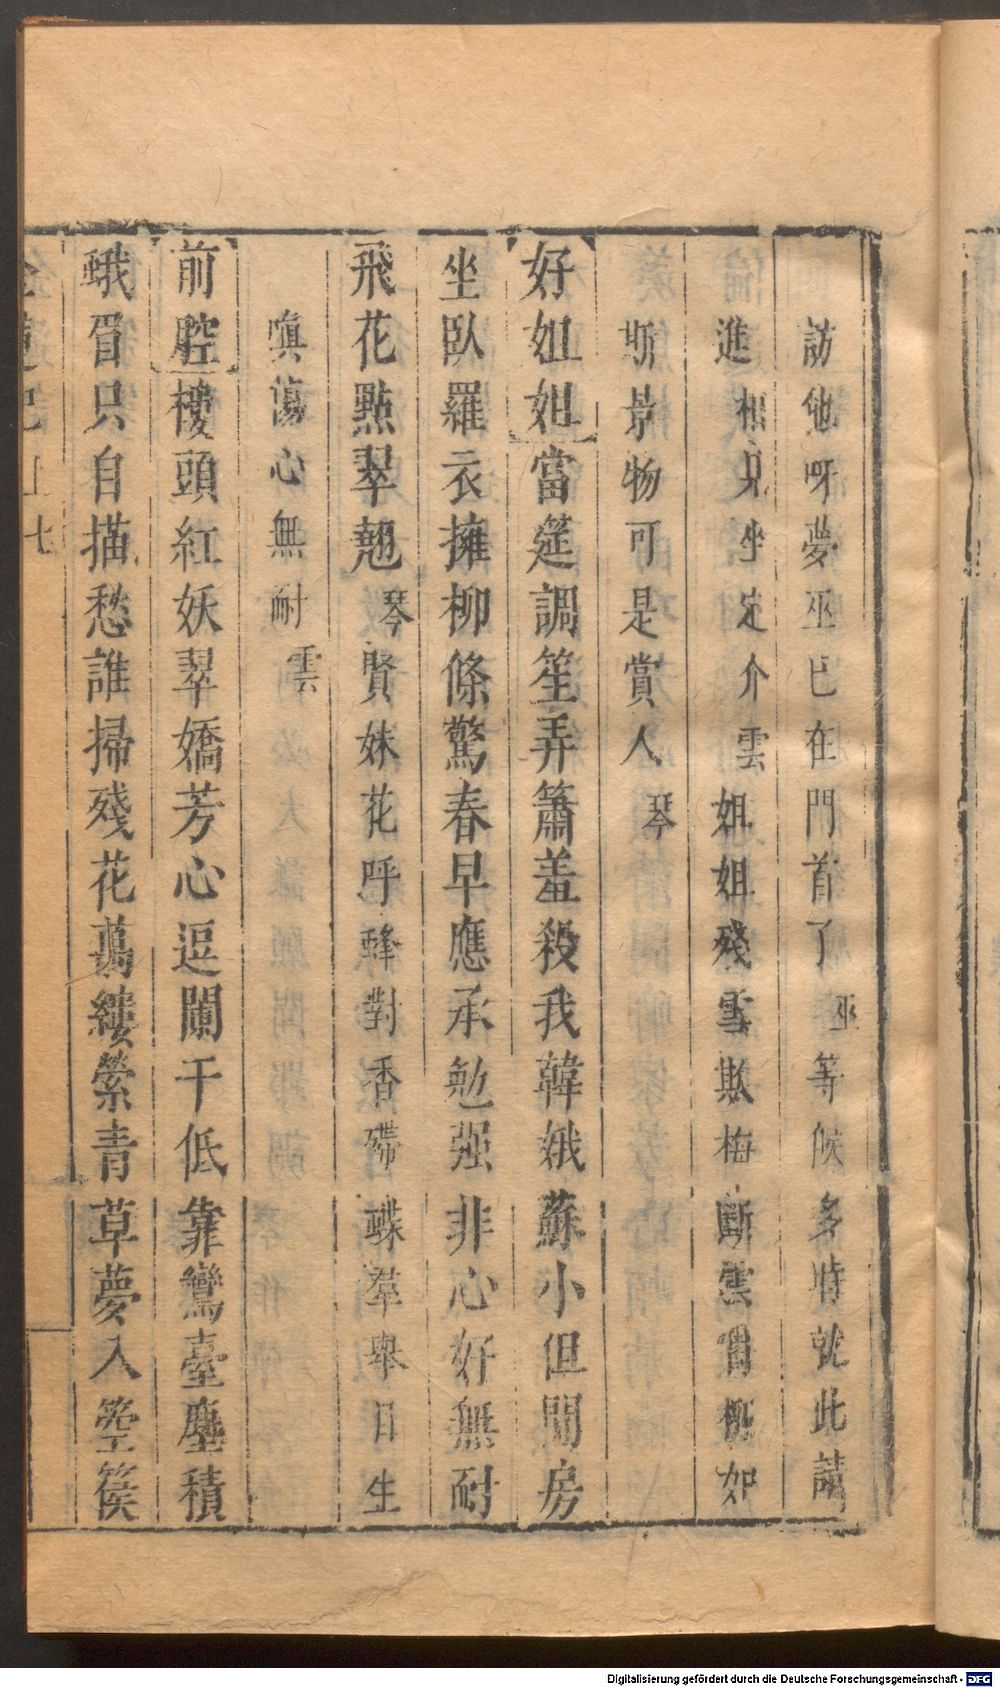 訪他呀夢巫巳在門首了巫等候多時就此請
進相見坐定介雲姐姐殘雪欺梅斷雲胃柳如
斯景物可是賞人琴
好姐姐當筵調笙弄簫羞殺我韓娥蘇小但閒房
坐臥羅衣擁柳條驚春早應承勉强非心好無耐
飛花點翠翹琴賢妹花呼蜂對香殢蝶羣舉目生
嗔蕩心無耐雲
前腔樓頭紅妖翠嬌芳心逗闌干低靠鸞臺塵積
蛾眉只自描愁誰掃殘花萬縷縈青草夢入箜篌
七
Digitalisierung gefördert durch die Deutsche Forschungsgemeinschaft - DFG